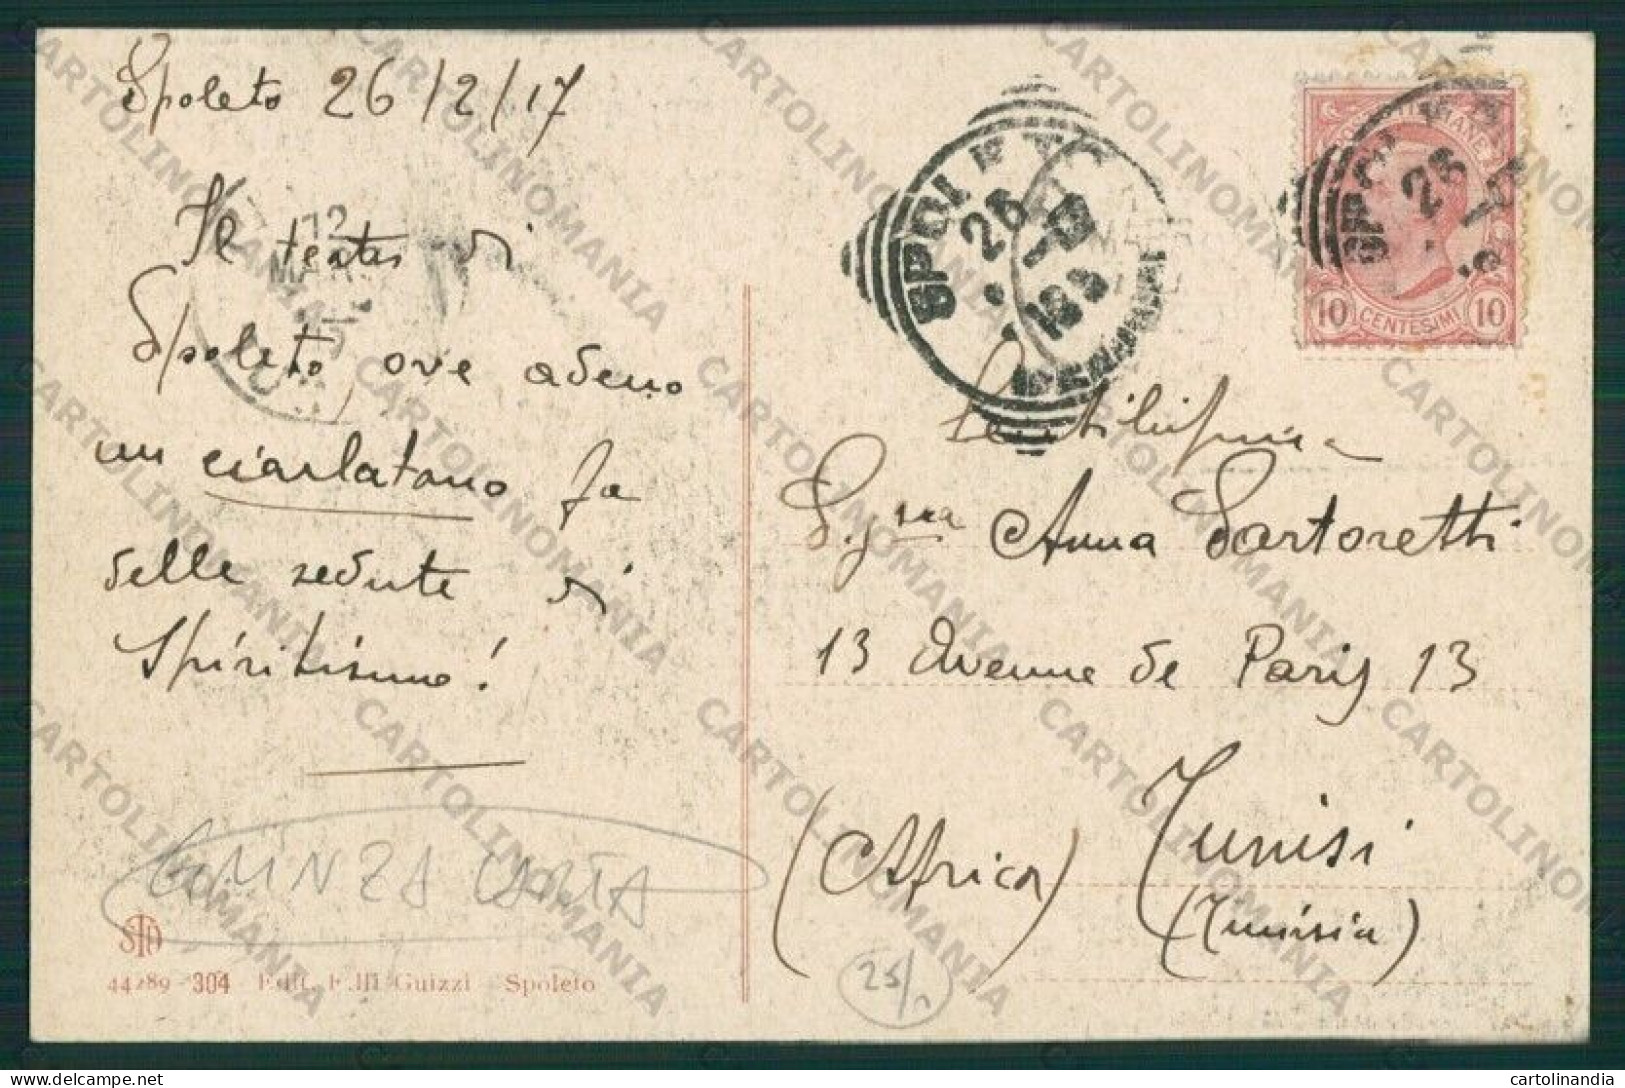 Spoleto 26/2/17
Il teatro di
Spoleto, ove adesso
un ciarlatano fa
delle sedute di
Spiritismo!
Gentilissima
Sig.ra Anna Sartoretti
13 Avenue de Paris 13
Tunisi
(Africa)
(Tunisia)
SPOLETO
26
PERUGIA
SPOL
26
10 CENTESIMI 10
12
MAR
STA
44289 - 304 Edit. F.lli Guizzi - Spoleto
25/
CARTOLINOMANIA
cartolinandia